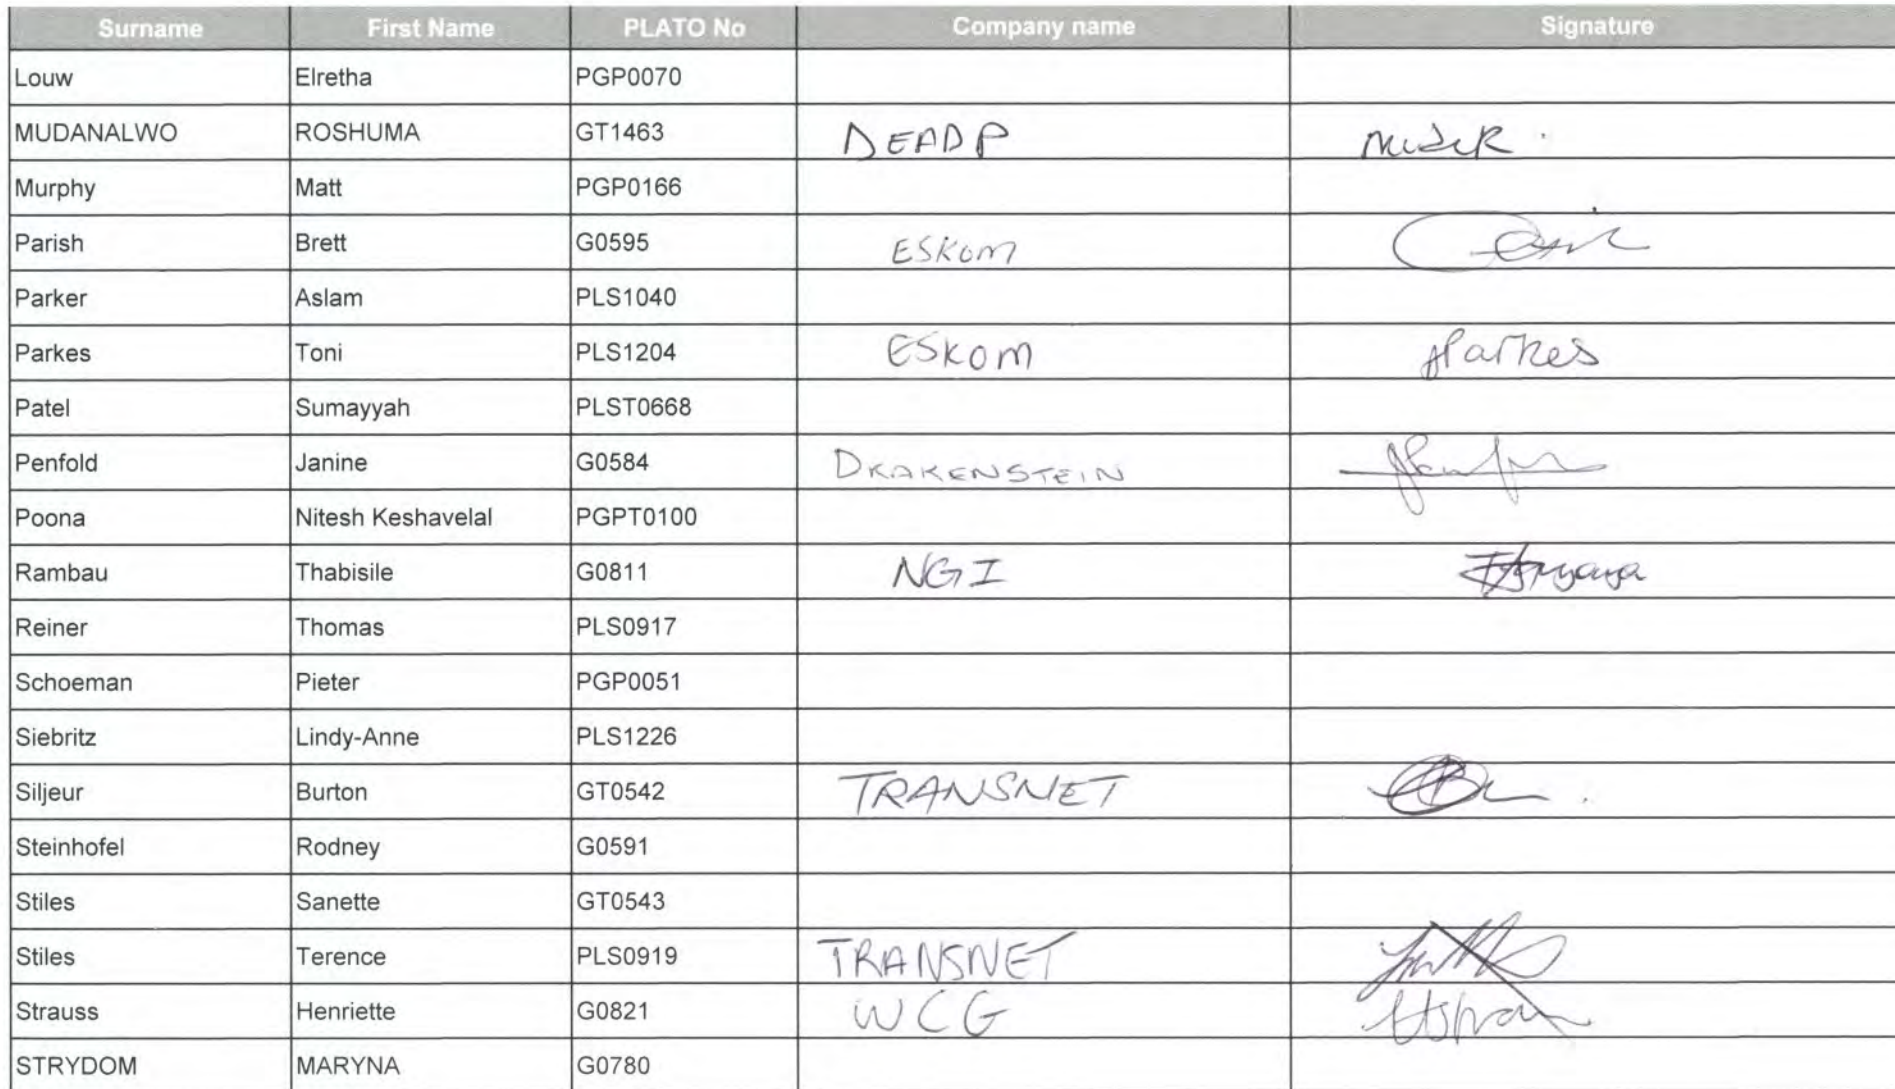 Surname First Name PLATO No Company name Signature
Louw Elretha PGP0070
MUDANALWO ROSHUMA GT1463 DEADP
Murphy Matt PGP0166
Parish Brett G0595 ESKOM
Parker Aslam PLS1040
Parkes Toni PLS1204 ESKOM Parkes
Patel Sumayyah PLST0668
Penfold Janine G0584 DRAKENSTEIN
Poona Nitesh Keshavelal PGPT0100
Rambau Thabisile G0811 NGI
Reiner Thomas PLS0917
Schoeman Pieter PGP0051
Siebritz Lindy-Anne PLS1226
Siljeur Burton GT0542 TRANSNET
Steinhofel Rodney G0591
Stiles Sanette GT0543
Stiles Terence PLS0919 TRANSNET
Strauss Henriette G0821 WCG
STRYDOM MARYNA G0780